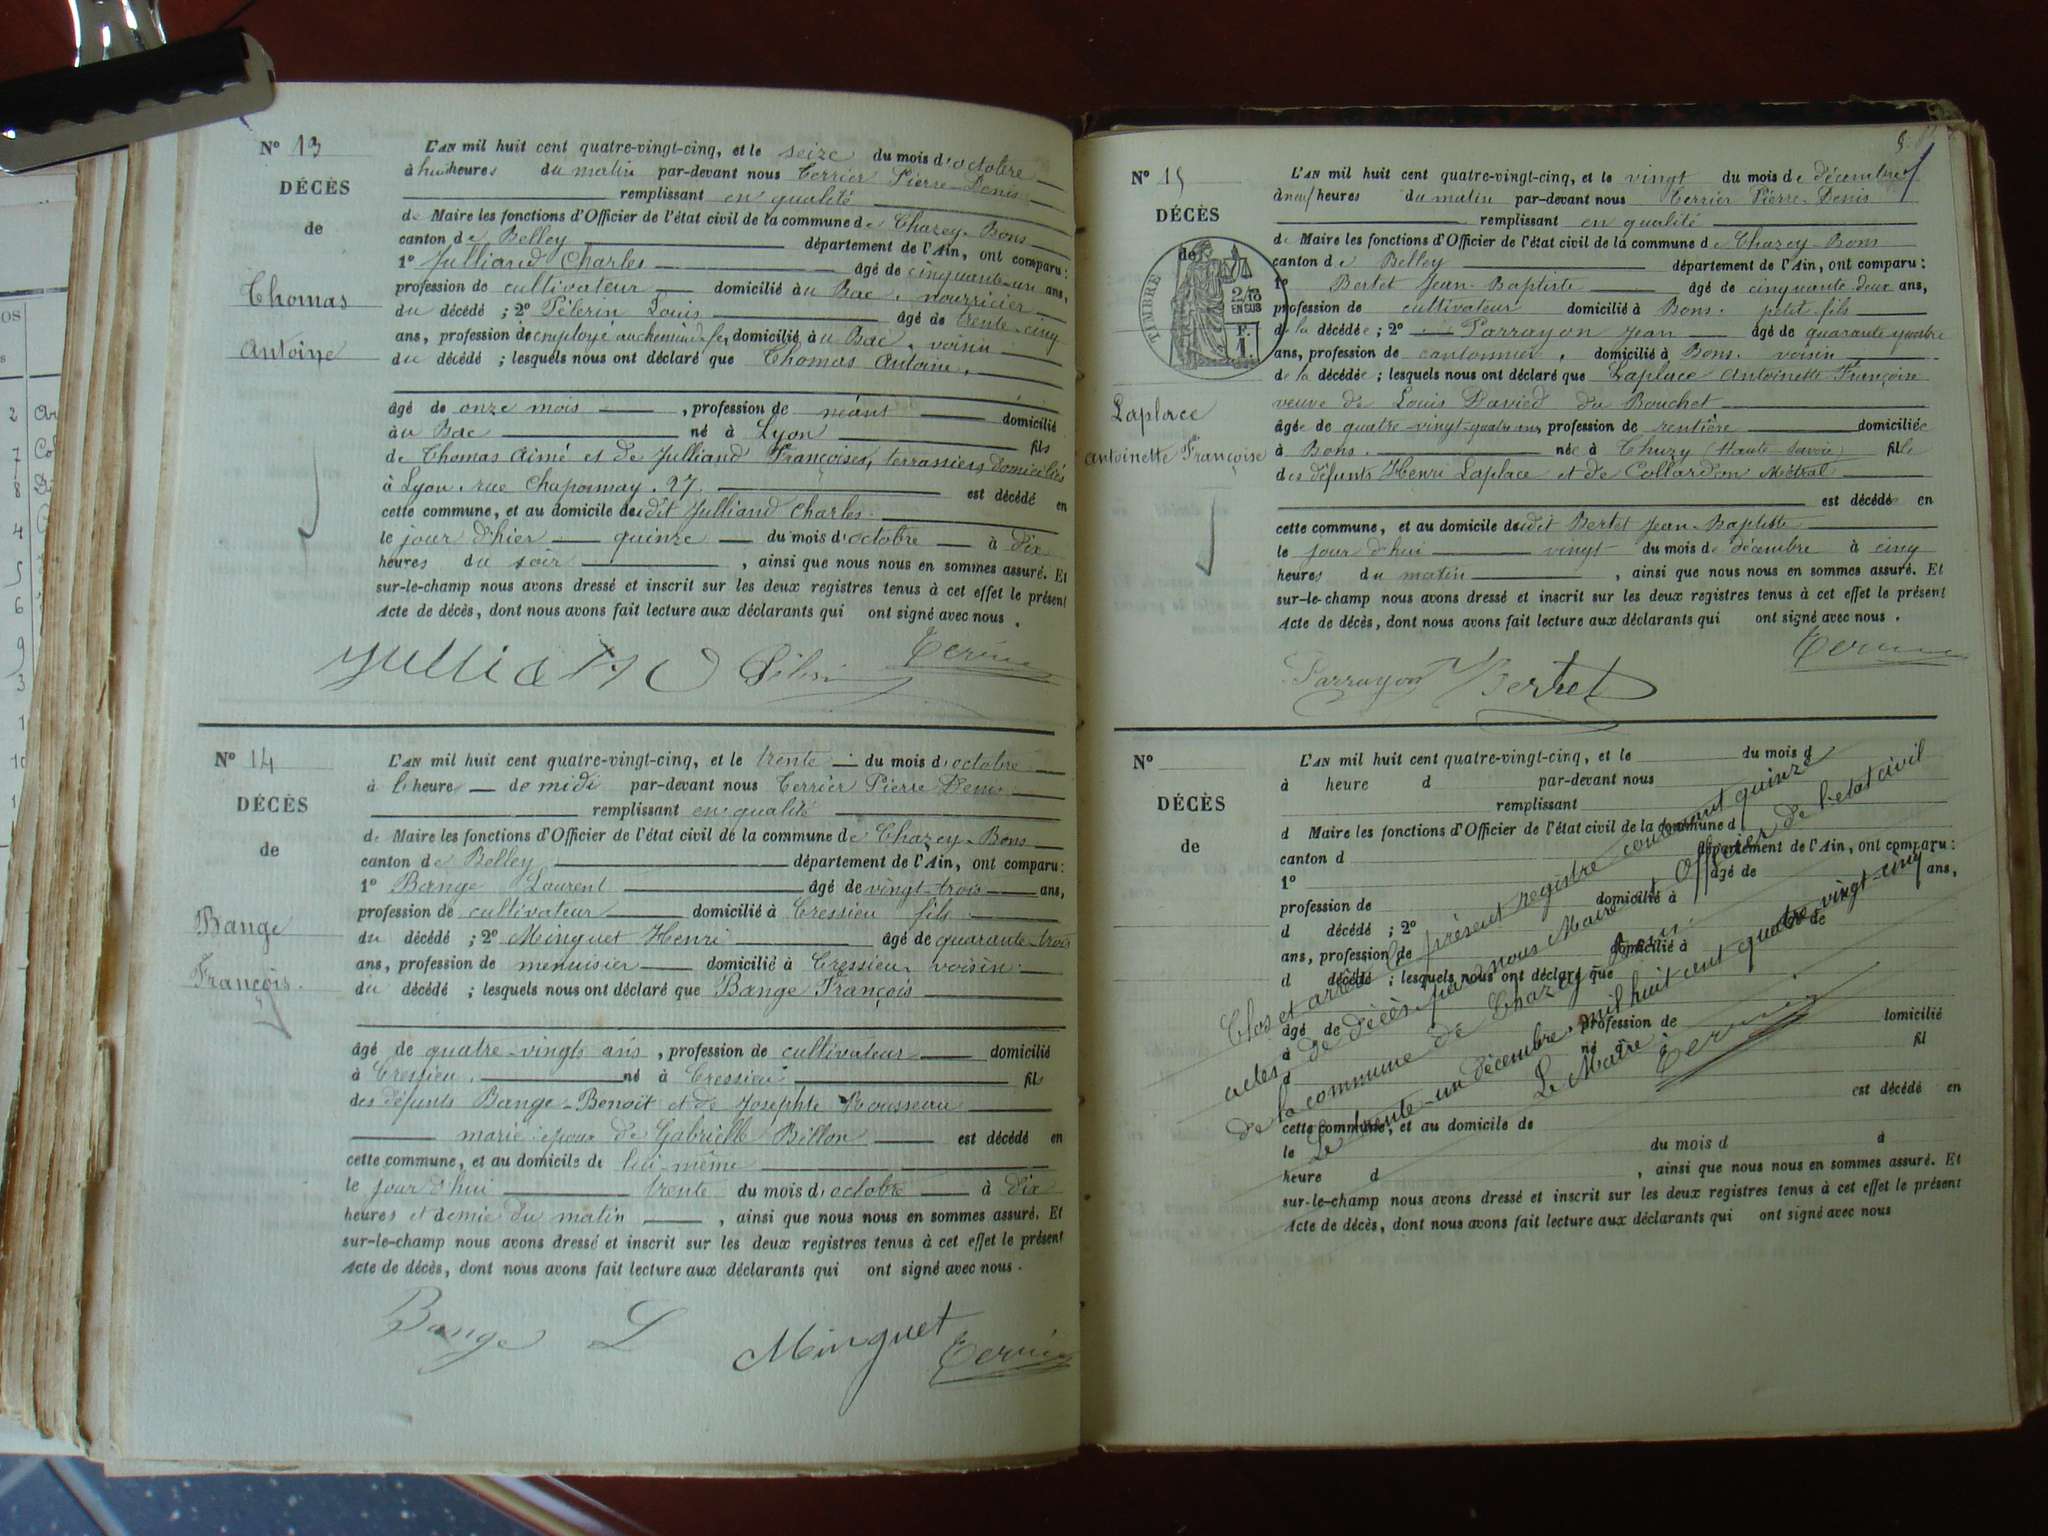 Nº 13
DÉCÈS
de
Thomas
Antoine
L'AN mil huit cent quatre-vingt-cinq, et le seize du mois d'octobre
à huit heures du matin par-devant nous Terrier Pierre-Denis
remplissant en qualité
de Maire les fonctions d'Officier de l'état civil de la commune de Chazey-Bons
canton de Belley département de l'Ain, ont comparu :
1º Julliand Charles âgé de cinquante-un ans,
profession de cultivateur domicilié au Bac, nourricier
du décédé ; 2º Pèlerin Louis âgé de trente-cinq
ans, profession de employé au chemin de fer, domicilié au Bac, voisin
du décédé ; lesquels nous ont déclaré que Thomas Antoine,
âgé de onze mois , profession de néant domicilié
au Bac né à Lyon fils
de Thomas Aimé et de Julliand Françoises, terrassiers domiciliés
à Lyon, rue Chaponnay, 27 est décédé en
cette commune, et au domicile dudit Julliand Charles
le jour d'hier quinze du mois d'octobre à dix
heures du soir , ainsi que nous nous en sommes assuré. Et
sur-le-champ nous avons dressé et inscrit sur les deux registres tenus à cet effet le présent
Acte de décès, dont nous avons fait lecture aux déclarants qui ont signé avec nous.
Nº 14
DÉCÈS
de
Bange
François
L'AN mil huit cent quatre-vingt-cinq, et le trente du mois d'octobre
à l'heure de midi par-devant nous Terrier Pierre Denis
remplissant en qualité
de Maire les fonctions d'Officier de l'état civil de la commune de Chazey-Bons
canton de Belley département de l'Ain, ont comparu :
1º Bange Laurent âgé de vingt-trois ans,
profession de cultivateur domicilié à Cressieu fils
du décédé ; 2º Minguet Henri âgé de quarante-trois
ans, profession de menuisier domicilié à Cressieu, voisin
du décédé ; lesquels nous ont déclaré que Bange François
âgé de quatre-vingts ans , profession de cultivateur domicilié
à Cressieu né à Cressieu fils
des défunts Bange-Benoit et de Josephte Rousseau
marié époux de Gabrielle Billon est décédé en
cette commune, et au domicile de lui-même
le jour d'hui trente du mois d'octobre à dix
heures et demie du matin , ainsi que nous nous en sommes assuré. Et
sur-le-champ nous avons dressé et inscrit sur les deux registres tenus à cet effet le présent
Acte de décès, dont nous avons fait lecture aux déclarants qui ont signé avec nous.
Bange L Minguet
Nº 15
DÉCÈS
de
TIMBRE
2/10
EN SUS
F.
1.
Laplace
Antoinette Françoise
L'AN mil huit cent quatre-vingt-cinq, et le vingt du mois de décembre
à neuf heures du matin par-devant nous Terrier Pierre-Denis
remplissant en qualité
de Maire les fonctions d'Officier de l'état civil de la commune de Chazey-Bons
canton de Belley département de l'Ain, ont comparu :
1º Bertet Jean-Baptiste âgé de cinquante-deux ans,
profession de cultivateur domicilié à Bons, petit fils
de la décédée ; 2º Parrayon Jean âgé de quarante-quatre
ans, profession de cantonnier, domicilié à Bons, voisin
de la décédée ; lesquels nous ont déclaré que Laplace Antoinette Françoise
veuve de Louis Davied du Bouchet
âgée de quatre-vingt-quatre ans, profession de rentière domiciliée
à Bons née à (Haute Savoie) fille
des défunts Henri Laplace et de Collardon Métral
est décédée en
cette commune, et au domicile dudit Bertet Jean-Baptiste
le jour d'hui vingt du mois de décembre à cinq
heures du matin , ainsi que nous nous en sommes assuré. Et
sur-le-champ nous avons dressé et inscrit sur les deux registres tenus à cet effet le présent
Acte de décès, dont nous avons fait lecture aux déclarants qui ont signé avec nous.
Parrayon Bertet
Nº
DÉCÈS
de
L'AN mil huit cent quatre-vingt-cinq, et le du mois d
à heure d par-devant nous
remplissant
d Maire les fonctions d'Officier de l'état civil de la commune d
canton d département de l'Ain, ont comparu :
1º âgé de ans,
profession de domicilié à
d décédé ; 2º âgé de
ans, profession de domicilié à
d décédé ; lesquels nous ont déclaré que
âgé de profession de domicilié
à né à fil
d
est décédé en
cette commune, et au domicile de
le du mois d à
heure d , ainsi que nous nous en sommes assuré. Et
sur-le-champ nous avons dressé et inscrit sur les deux registres tenus à cet effet le présent
Acte de décès, dont nous avons fait lecture aux déclarants qui ont signé avec nous
Clos et arrêté le présent registre contenant quinze
actes de décès par nous Maire et Officier de l'état civil
de la commune de Chazey Bons
Le trente-un décembre mil huit cent quatre-vingt-cinq
Le Maire